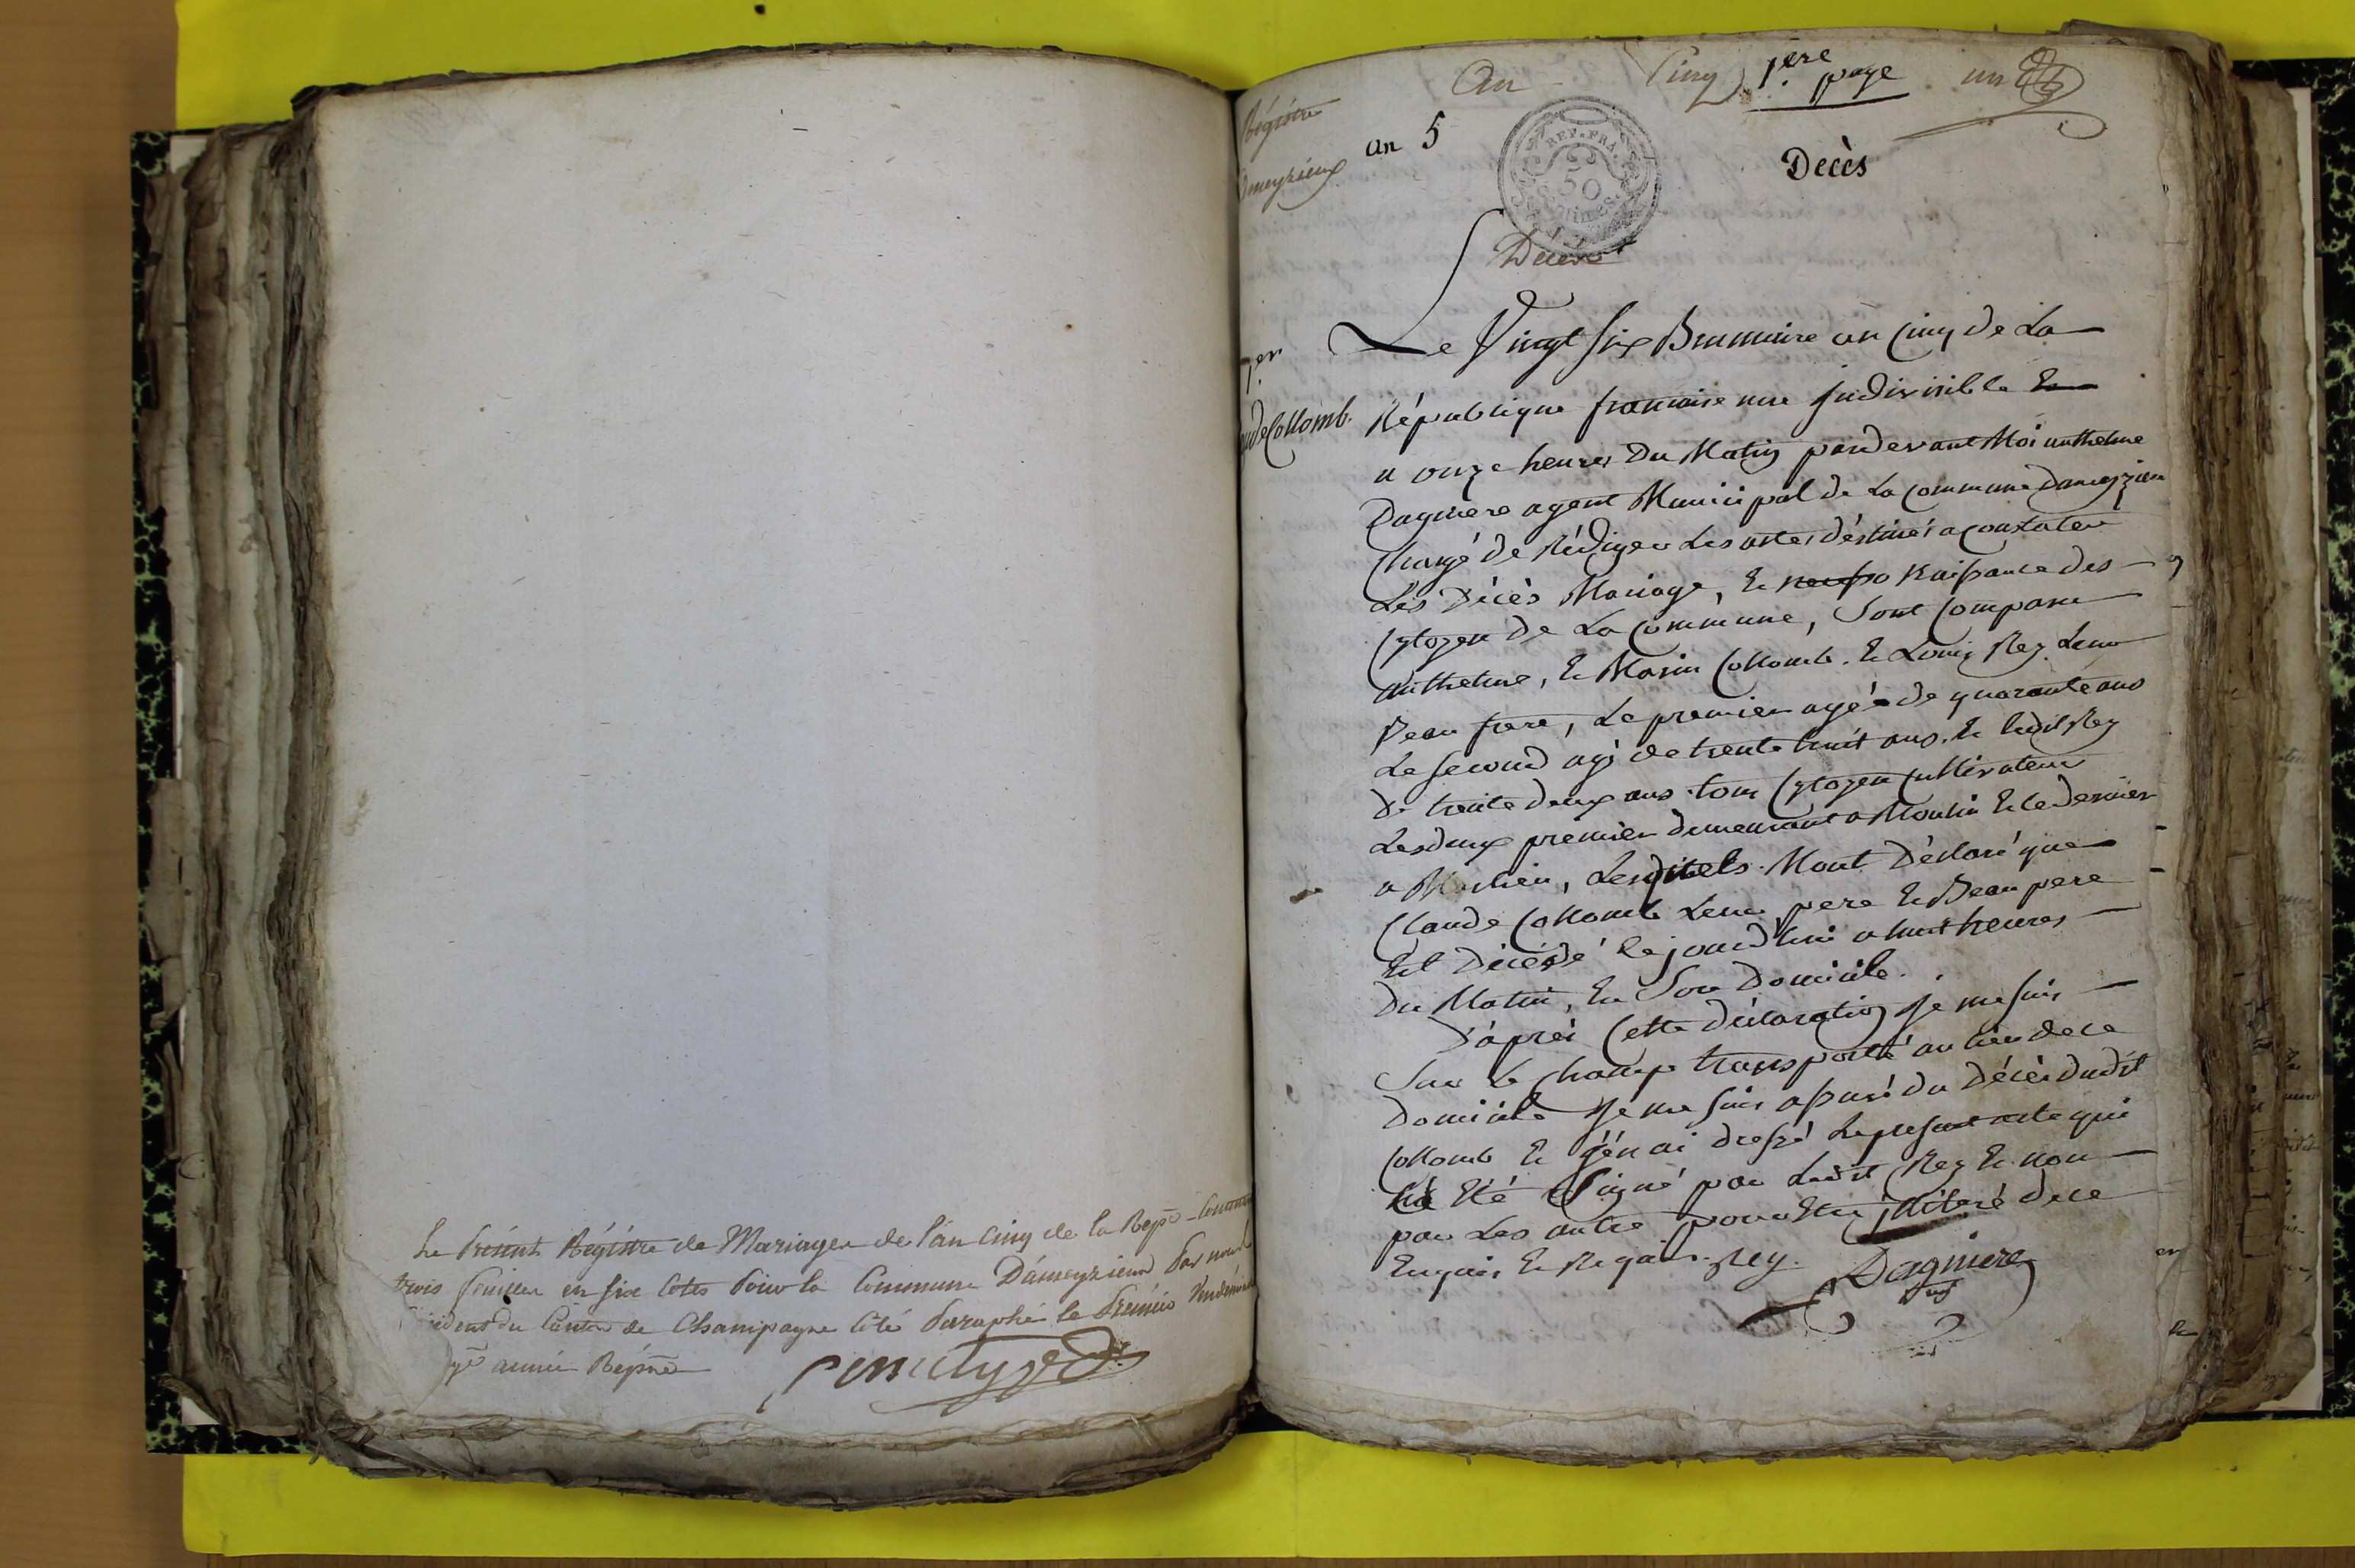 Le Présent Régistre de Mariages de l'an Cinq de la Rep.e Contenant
trois feuilles en six Cotes Pour la Commune D'ameyzieux Par nous
du Canton de Champagne Coté Paraphé le Premier Vendémiaire
année Rep.ne
An Cinq 1.ere page un
Régistre
ameyzieux
an 5
REP. FRA.
50
Centimes
Décès
Décès
1.er
Collomb.
Le Vingt Six Brumaire an Cinq de La
République francoise une Indivisible Et
a onze heures Du Matin pardevant Moi anthelme
Dagniere agent Municipal de La Commune Dameyzieu
Chargé de Rédiger Les actes déstinés a Constater
Les Décès Mariage, Et Naissance des
Cytoyen de La Commune, Sont Comparu
Anthelme, Et Marin Collomb. Et Louis Rey Leur
Beau frere, Le premier agé de quarante ans
Le Second agé de trente huit ans. Et Ledit Rey
De trente deux ans tous Cytoyen Cultivateur
Les deux premier demeurant a Moulin Et le Dernier
a, Lesquels Mont Déclaré que
Claude Collomb Leur pere Et Beau pere
Est Décédé Ce jourd'hui a huit heures
Du Matin, En Son Domicile.
D'aprés Cette déclaration Je me suis
Sur Le Champ transporté au lieu de ce
Domicile Je me suis assuré du Décès dudit
Collomb Et j'én ai dressé Le present acte qui
há Eté Signé par Ledit Rey Et non
par Les autre pour Etre illiteré de ce
Enquis Et Requis. Rey. Dagniere